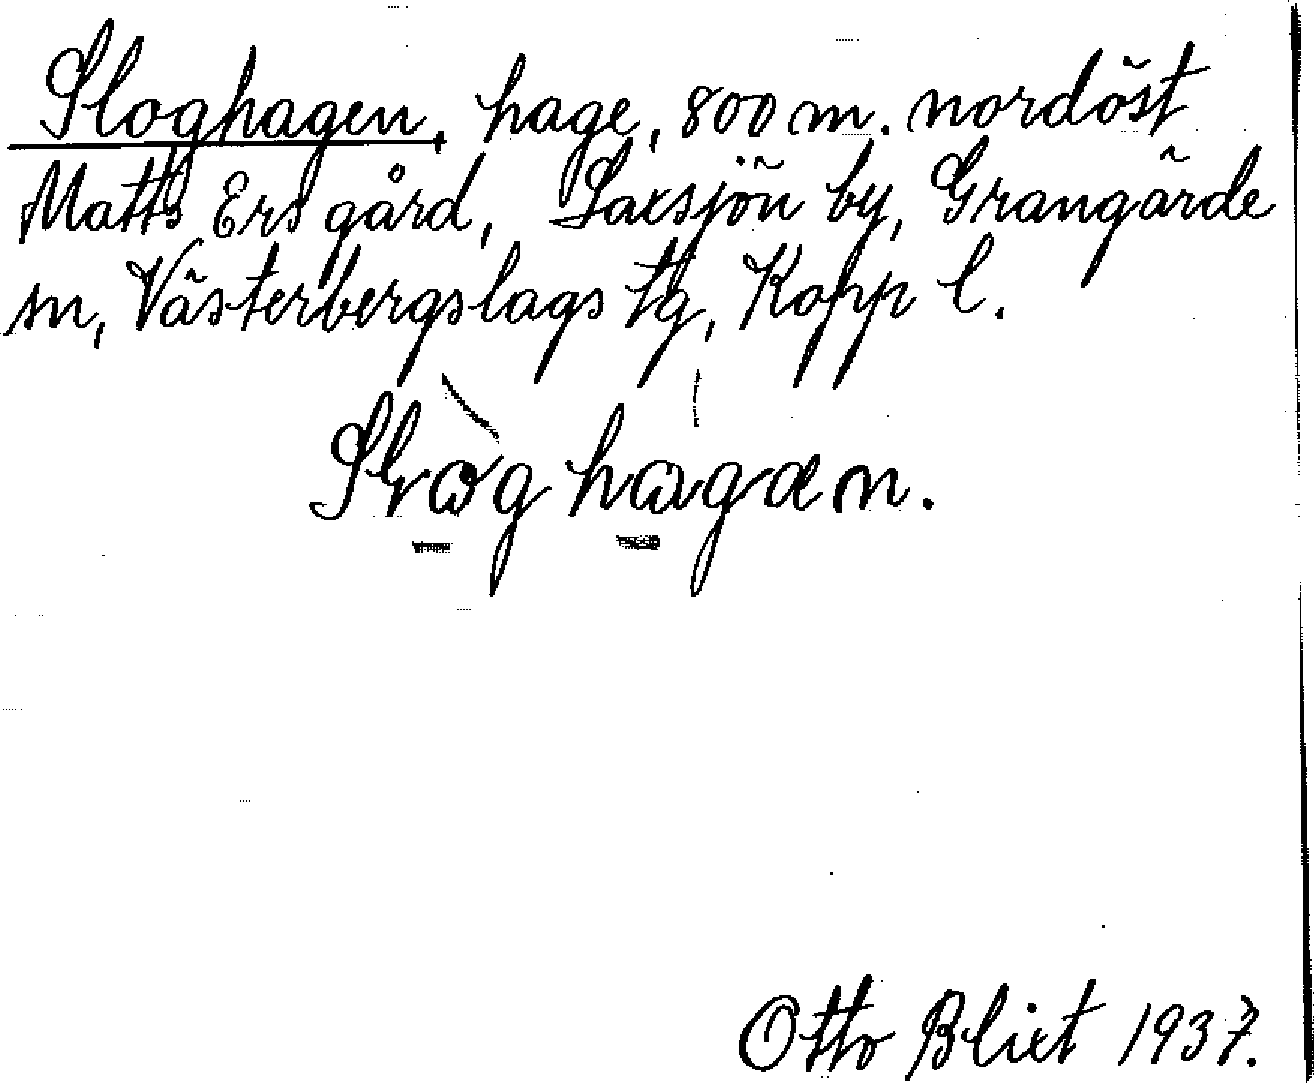 Sloghagen, hage, 800 m. nordöst
Matts Ers gård, Saxsjön by, Grangärde
sn, Västerbergslags tg, Kopp l.
Skòghagan.
Otto Blixt 1937.